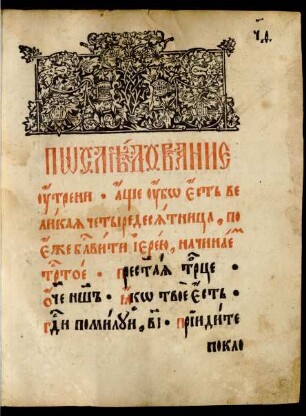 Пѡслѣдованіе
оу҆трени · а҆ще оу҆бѡ є҆сть ве
ликаѧ четыредесѧтница, по
є҆же бл҃вити і҆ерею, начинае҆
трⷭ҇тое · прест҃аѧ трⷪ҇це ·
о҆́че на́шъ · ꙗ҆́кѡ твое є҆сть ·
гдⷭ҇и помилꙋй, в҃і · прїидите
покло